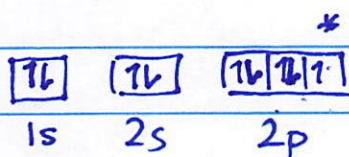 *
[⥮] [⥮] [⥮|⥮|↿]
1s 2s 2p